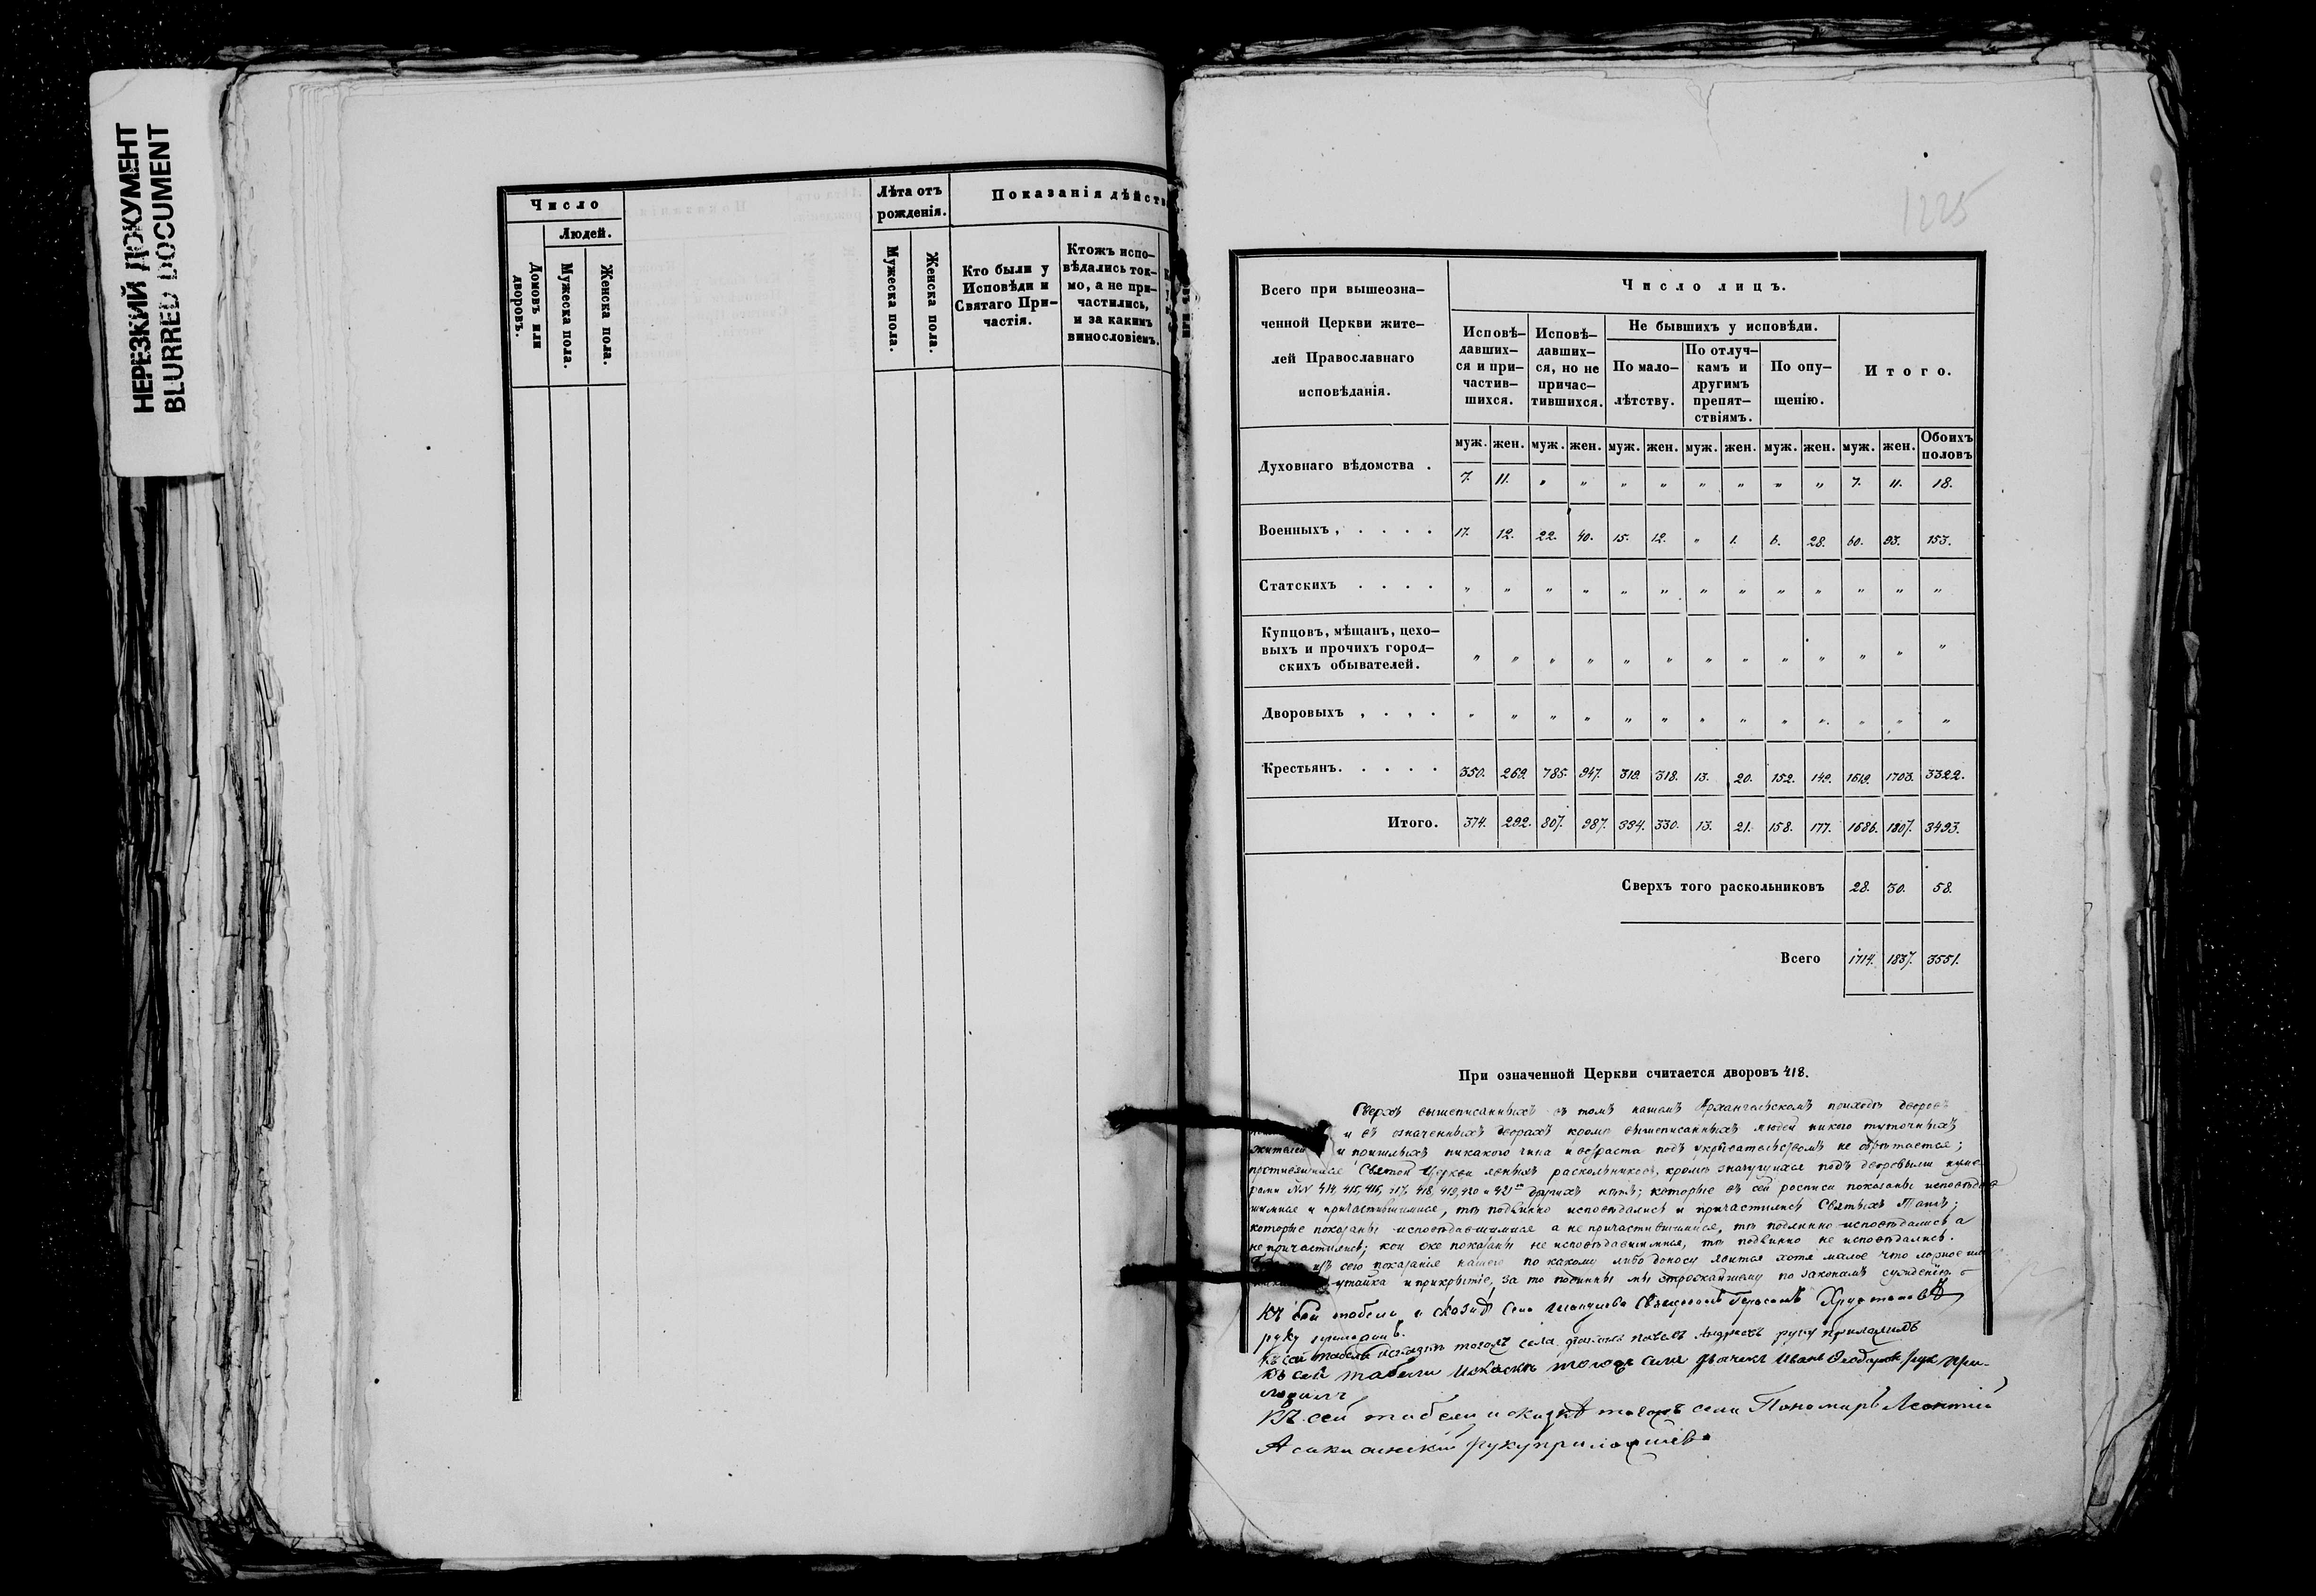 НЕРЕЗКИЙ ДОКУМЕНТ
BLURRED DOCUMENT
Число
Людей.
Домовъ или дворовъ.
Мужеска пола.
Женска пола.
Лѣта отъ рожденія.
Мужеска пола.
Женска пола.
Показанія дѣйств
Кто были у
Исповѣди и
Святаго При-
частія.
Ктожъ испо-
вѣдались ток-
мо, а не при-
частились,
и за какимъ
винословіемъ.
1225
Всего при вышеозна-
ченной Церкви жите-
лей Православнаго
исповѣданія.
Число лицъ.
Исповѣ-
давших-
ся и при-
частив-
шихся.
Исповѣ-
давших-
ся, но не
причас-
тившихся.
Не бывшихъ у исповѣди.
По мало-
лѣтству.
По отлуч-
камъ и
другимъ
препят-
ствіямъ.
По опу-
щенію.
Итого.
муж. жен. муж. жен. муж. жен. муж. жен. муж. жен. муж. жен. Обоихъ половъ
Духовнаго вѣдомства . 7. 11. „ „ „ „ „ „ „ „ 7. 11. 18.
Военныхъ , . . . . 17. 12. 22. 40. 15. 12. „ 1. 6. 28. 60. 93. 153.
Статскихъ . . . . „ „ „ „ „ „ „ „ „ „ „ „ „
Купцовъ, мѣщанъ, цехо-
выхъ и прочихъ город-
скихъ обывателей. „ „ „ „ „ „ „ „ „ „ „ „ „
Дворовыхъ , . , . „ „ „ „ „ „ „ „ „ „ „ „ „
Крестьянъ. . . . . 350. 269. 785. 947. 319. 318. 13. 20. 152. 149. 1619. 1703. 3322.
Итого. 374. 292. 807. 987. 334. 330. 13. 21. 158. 177. 1686. 1807. 3493.
Сверхъ того раскольниковъ 28. 30. 58.
Всего 1714. 1837. 3551.
При означенной Церкви считается дворовъ 418.
Сверхъ вышеписанныхъ въ томъ нашемъ Архангельскомъ приходѣ дворовъ
и въ означенныхъ дворахъ кромѣ вышеписанныхъ людей никого туточныхъ
жителей и пришлыхъ никакого чина и возраста подъ укрывательствомъ не обрѣтается;
противящихся Святой Церкви явныхъ раскольниковъ, кромѣ значущихся подъ дворовыми нуме-
рами №№ 414, 415, 416, 417, 418, 419, 420 и 421 другихъ нѣтъ; которые въ сей росписи показаны исповѣдав
шимися и причастившимися, тѣ подлинно исповѣдались и причастились Святыхъ Таинъ;
которые показаны исповѣдавшимися а не причастившимися, тѣ подлинно исповѣдались а
не причастились; кои же показаны не исповѣдавшимися, тѣ подлинно не исповѣдались.
изъ сего показанія нашего по какому либо доносу явится хотя малое что ложное или
утайка и прикрытіе, за то повинны мы строжайшему по законамъ сужденію.
Къ сей табели и сказкѣ села Священникъ Герасимъ Христановъ
руку приложилъ.
Къ сей табели и сказкѣ тогожъ села Павелъ Андреевъ руку приложилъ
Къ сей табели и сказкѣ тогожъ села дьячекъ Иванъ Феодоровъ руку при-
ложилъ
Къ сей табели и сказкѣ тогожъ села Пономарь Леонтій
руку приложилъ